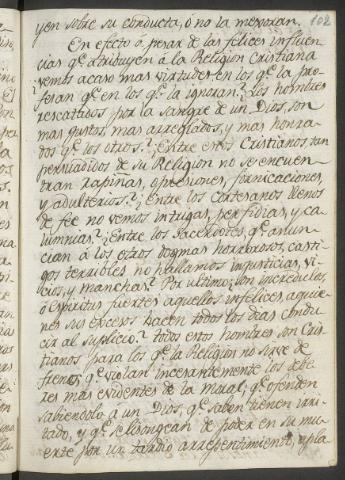 102
yen sobre su conducta, ó no la mejoran.
En efecto á pesar de las felices influen
cias qe. atribuyen á la Religion Cristiana
vemos acaso mas virtudes en los qe. la pro-
fesan qe. en los qe. la ignoran? Los hombres
rescattados por la sangre de un Dios, son
mas justos, mas arreglados, y mas honra-
dos qe. los otros? Entre estos Cristianos tan
persuadidos de su Religion no se encuen-
tran rapiñas, opresiones, fornicaciones,
y adulterios? Entre los Cortesanos llenos
de fee no vemos intrigas, perfidias, y ca-
lumnias? Entre los Sacerdotes, qe. anun-
cian á los otros dogmas horrorosos, casti-
gos terribles no hallamos injusticias, vi-
cios, y manchas? Por ultimo: son incredulos,
ó Espiritus fuertes aquellos infelices aquie-
nes sus excesos hacen todos los dias condu
cir al suplicio? todos estos hombres son Cris-
tianos para los qe. la Religion no sirve de
freno; qe. violan incesantemente los debe-
res mas evidentes de la moral; qe. ofenden
sabiendolo a un Dios, qe. saben tienen irri-
tado, y qe. se lisongean de poder en su mu-
erte por un tardio arrepentimiento, apla